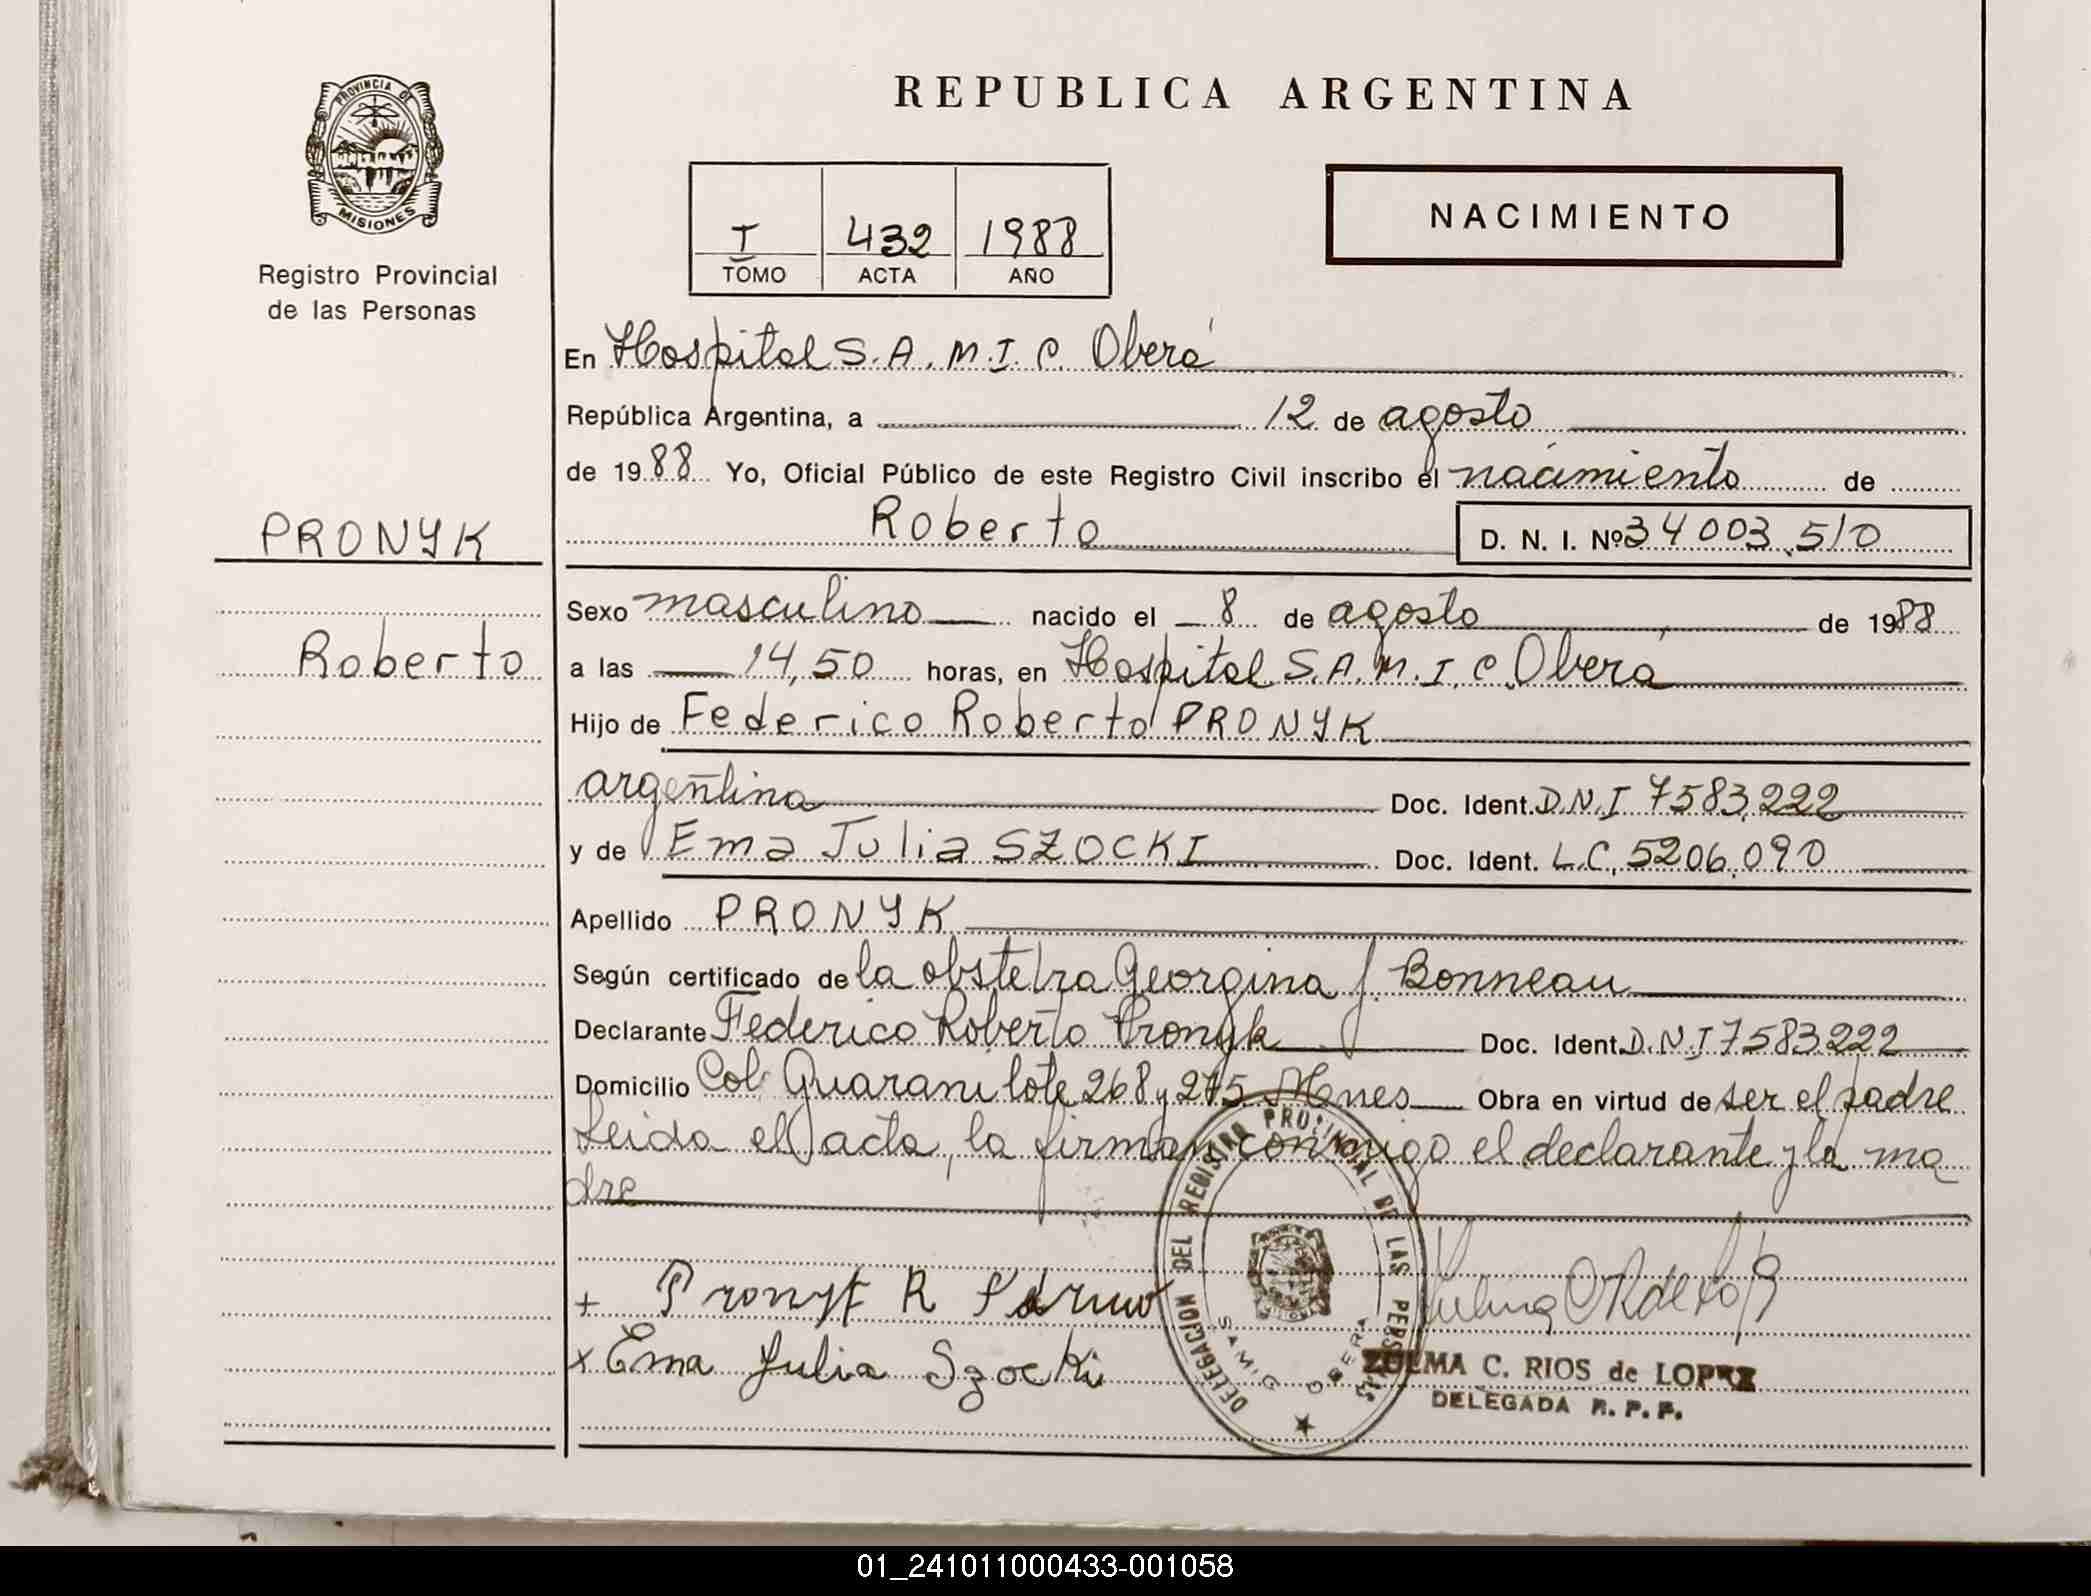 REPUBLICA ARGENTINA
PROVINCIA DE
MISIONES
Registro Provincial
de las Personas
I 432 1988
TOMO ACTA AÑO
NACIMIENTO
En Hospital S.A.M.I.C. Oberá
República Argentina, a 12 de agosto
de 1988 Yo, Oficial Público de este Registro Civil inscribo el nacimiento de
PRONYK
Roberto D. N. I. Nº 34003.510
Sexo masculino nacido el 8 de agosto de 1988
Roberto
a las 14,50 horas, en Hospital S.A.M.I.C. Oberá
Hijo de Federico Roberto PRONYK
argentina Doc. Ident. D.N.I 7583.222
y de Ema Julia SZOCKI Doc. Ident. L.C. 5206.090
Apellido PRONYK
Según certificado de la obstetra Georgina J. Bonneau
Declarante Federico Roberto Pronyk Doc. Ident. D.N.I 7583.222
Domicilio Col. Guarani lote 268 y 275 Mnes Obra en virtud de ser el padre
Leida el acta, la firman conmigo el declarante y la ma
dre
+ Pronyk R
x Ema Julia Szocki
DELEGACION DEL REGISTRO PROVINCIAL DE LAS PERSONAS
SAMIC OBERA
ZULMA C. RIOS de LOPEZ
DELEGADA R. P. P.
01_241011000433-001058